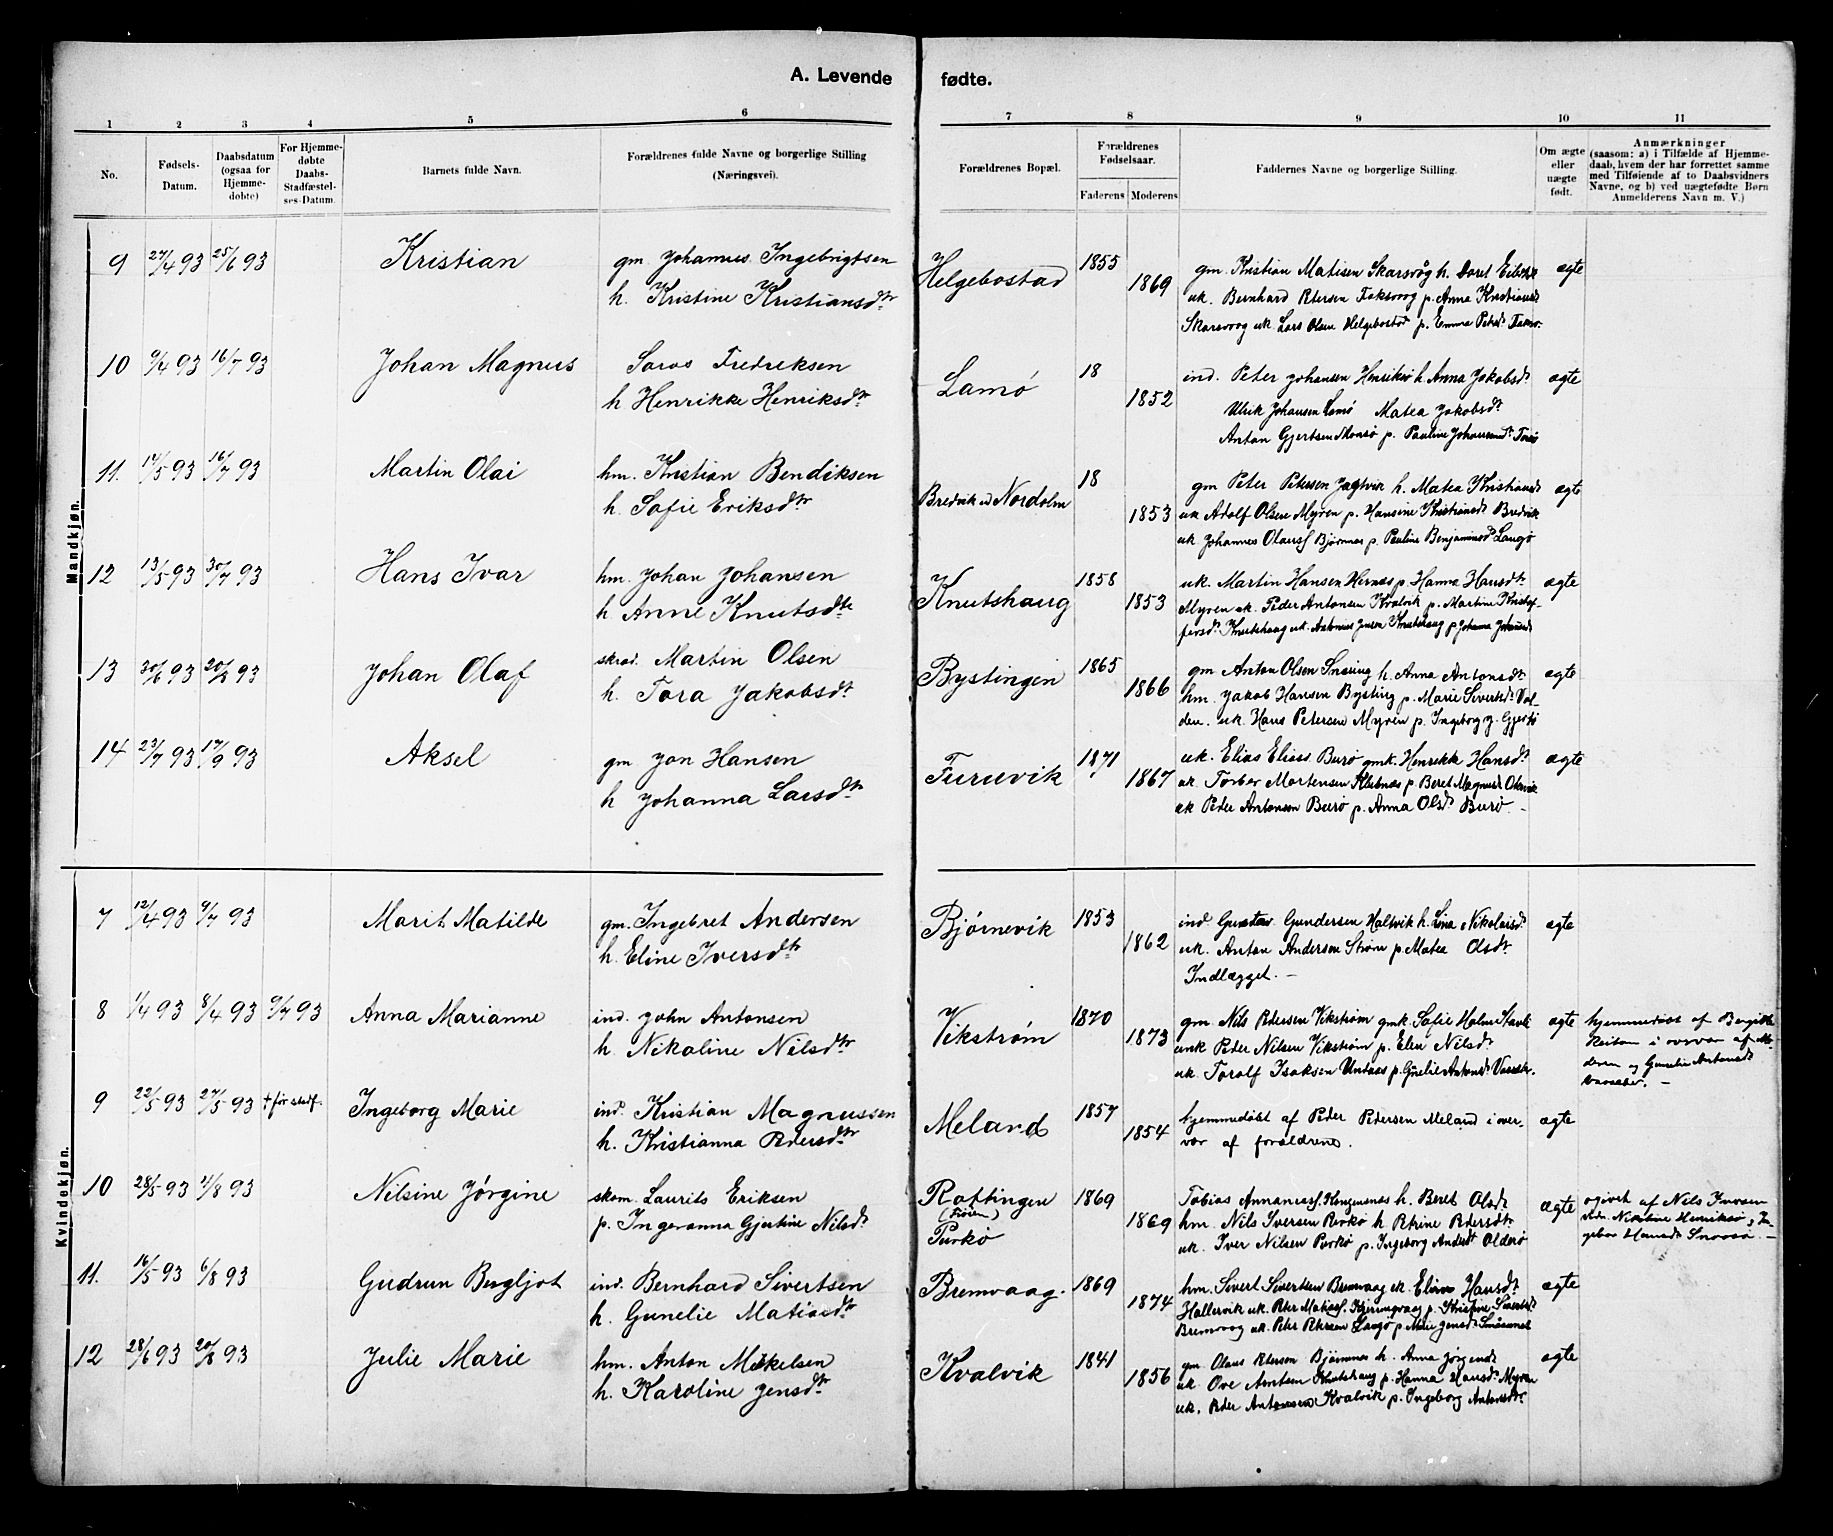 A. Levende fødte.
1 2 3 4 5 6 7 8 9 10 11
No.
Fødsels-Datum.
Daabsdatum (ogsaa for Hjemmedøbte)
For Hjemmedøbte Daabs-Stadfæstelses-Datum.
Barnets fulde Navn.
Forældrenes fulde Navne og borgerlige Stilling (Næringsvei).
Forældrenes Bopæl.
Forældrenes Fødselsaar.
Faderens Moderens
Faddernes Navne og borgerlige Stilling.
Om ægte eller uægte født.
Anmærkninger
(saasom: a) i Tilfælde af Hjemme-
daab, hvem der har forrettet samme
med Tilføiende af to Daabsvidners
Navne, og b) ved uægtefødte Børn
Anmelderens Navn m. V.)
Mandkjøn.
9 27/4 93 25/6 93 Kristian gm Johannes Ingebrigtsen Helgebostad 1855 gm. Kristian Matisen Skarsvåg h. Doret ægte
h. Kristine Kristiansdtr 1869 uk. Bernhard Petersen Faksvog p. Anna Kristiansd
Skarsvog uk. Lars Olsen Helgebostad p. Emma Petersd
10 9/4 93 16/7 93 Johan Magnus Fredreksen Lamø 18 ind. Peter Johansen h. Anna Jakobsdt ægte
h Henrikke Henriksdtr 1852 Ulrik Johansen Lamø Matea Jakobsdt
Anton Gjertsen p. Pauline
11. 14/5 93 16/7 93 Martin Olai hm. Kristian Bendiksen Bredvik Nordolm 18 gm Peter Petersen Jagtvik h. Matea Kristiansd ægte
h. Sofie Eriksdtr 1853 uk Adolf Olsen Myren p. Hansine Kristiansd Bredvik
uk. Johannes Bjørnnes p. Pauline Benjaminsd Langø
12 13/5 93 30/7 93 Hans Ivar hm. Johan Johansen Knutshaug 1858 uk. Martin Hansen Hernes p. Hanna Hansdtr ægte
h. Anne Knutsdtr 1853 Myren uk. Peder Antonsen Kvalvik p. Martine Kristof-
fersdt. Knutshaug uk. Antonius Jensen Knutshaug p Johanna
13 30/6 93 20/8 93 Johan Olaf skræd. Martin Olsen Bystingen 1865 gm Anton Olsen Snaring h. Anna Antonsdtr ægte
h. Tora Jakobsdtr 1866 hm. Jakob Hansen Bysting p. Marie Sivertsdt Val-
den. uk. Hans Petersen Myren p. Ingeborg
14 23/7 93 17/9 93 Aksel gm Jon Hansen Furuvik 1871 uk. Elias Eliass. Burø gmk. Henrikke Hansdtr ægte
h Johanna Larsdtr 1867 uk. Torber Mortensen p. Beret Magnusd
uk Peder Antonsen Burø p. Anna Olsdt Burø. -
Kvindekjøn.
7 12/4 93 9/7 93 Marit Matilde gm. Ingebret Andersen Bjørnevik 1853 ind. Gustav Gundersen Haltvik h. Lina Nikolaisdt ægte
h. Eline Iversdtr 1862 uk. Anton Andersen Strøm p. Matea Olsdt
Indlægget. -
8 1/4 93 8/4 93 9/7 93 Anna Marianne ind. John Antonsen Vikstrøm 1870 gm. Nils Pedersen Vikstrøm gmk. Sofie Holm ægte hjemmedøbt af Bergitte
h. Nikoline Nilsdtr 1873 unk Peder Nilsen Vikstrøm p. Elen Nilsdt i overvær af Mo-
uk. Toralf Isaksen Undaas p. Gunelie Antonsd deren og Gunelie Antonsd
9 22/5 93 27/5 93 + før stadf. Ingeborg Marie ind. Kristian Magnussen Meland 1857 hjemmedøbt af Peder Pedersen Meland i over- ægte
h. Kristianna Pedersdtr 1854 vær af forældrene.
10 28/5 93 1/8 93 Nilsine Jørgine skom. Laurits Eriksen Rottingen 1869 Tobias h. Beret Olsdt ægte ogivet af Nils Iversen
p. Ingeranna Gjertine Nilsdt (Frøien) Purkø 1869 hm. Nils Iversen Purkø h Petrine Pedersdtr
uk. Iver Nilsen Purkø p. Ingeborg Andersdt Olderø
11. 16/5 93 6/8 93 Gudrun Bergljot ind. Bernhard Sivertsen Bremvaag. 1869 hm. Sivert Sivertsen Bremvaag uk. Hansdt ægte
h. Gunelie Matiasdtr 1874 Hallervik uk. Peter Kjerringvaag p. Kristine Sivertsd
Bremvaag uk. Peter Petersen Langø p. Marie Jensdt
12 28/6 93 20/8 93 Julie Marie hm. Anton Mikelsen Kvalvik 1841 gm Olaus Petersen Bjørnnes h. Anna Jørgensdt ægte
h. Karoline Jensdtr 1856 uk. Ove Arntsen Knutshaug p. Hanna Hansdt Myren
uk. Peder Antonsen Kvalvik p. Ingeborg Antonsdtr